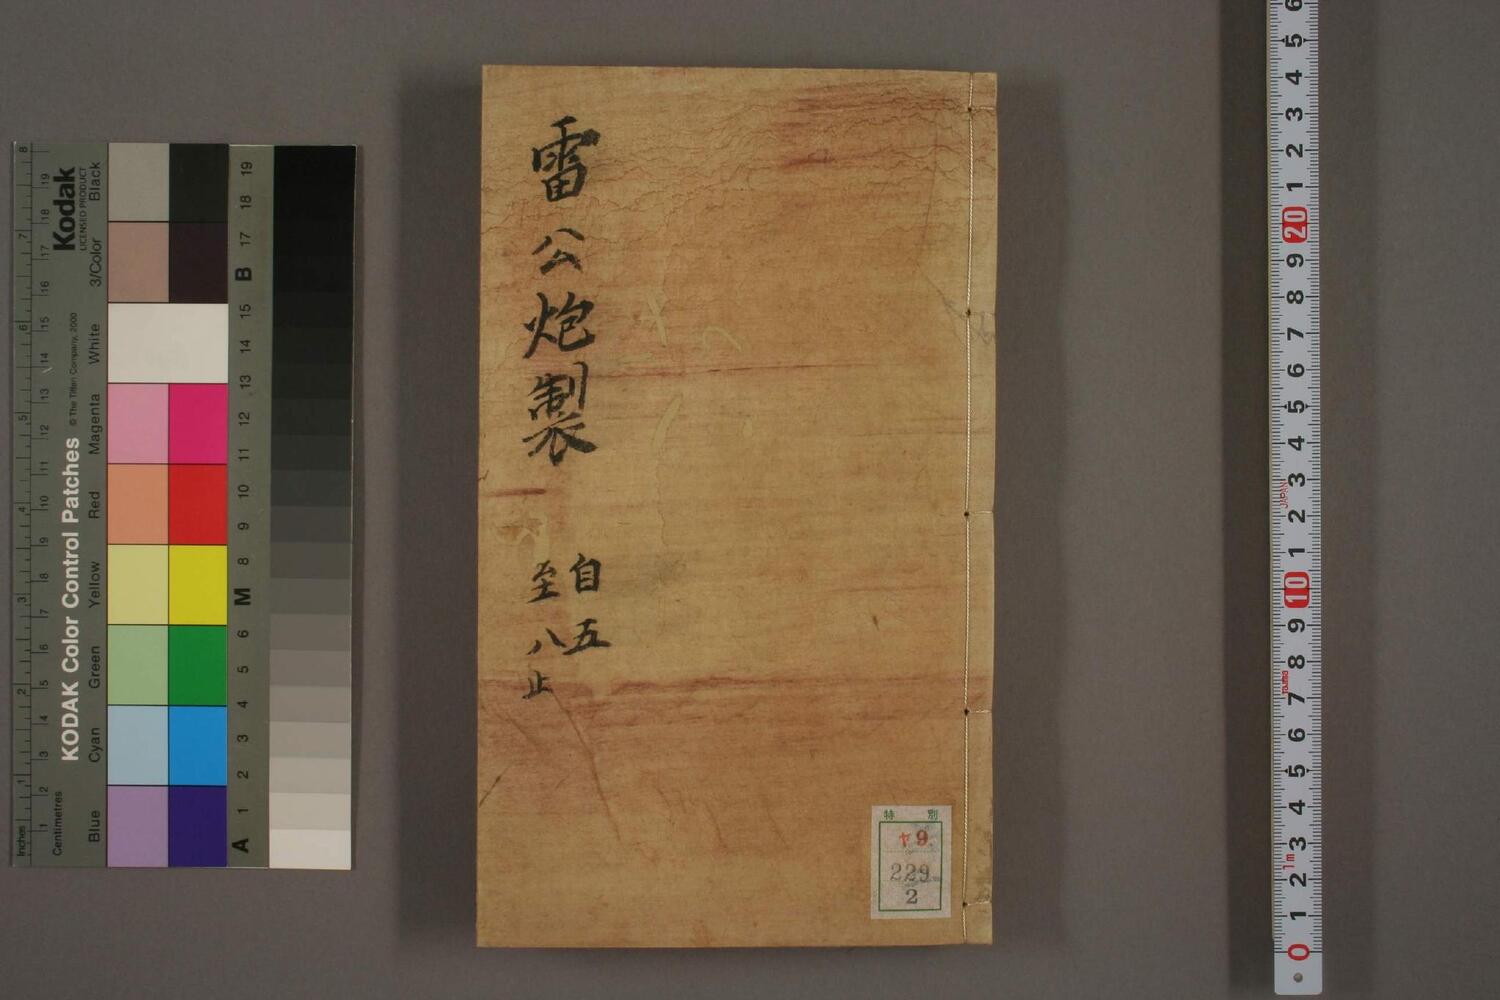 雷公炮製
自五
至八止
特別
ヤ9
229
2
Kodak
LICENSED PRODUCT
KODAK Color Control Patches
© The Tiffen Company, 2000
Inches
Centimetres
Blue
Cyan
Green
Yellow
Red
Magenta
White
3/Color
Black
8
7
6
5
4
3
2
1
19
18
17
16
15
14
13
12
11
10
9
8
7
6
5
4
3
2
1
19
18
17
B
15
14
13
12
11
10
9
8
M
6
5
4
3
2
1
A
6
5
4
3
2
1
20
9
8
7
6
5
4
3
2
1
10
9
8
7
6
5
4
3
2
1
0
JAPAN
1m